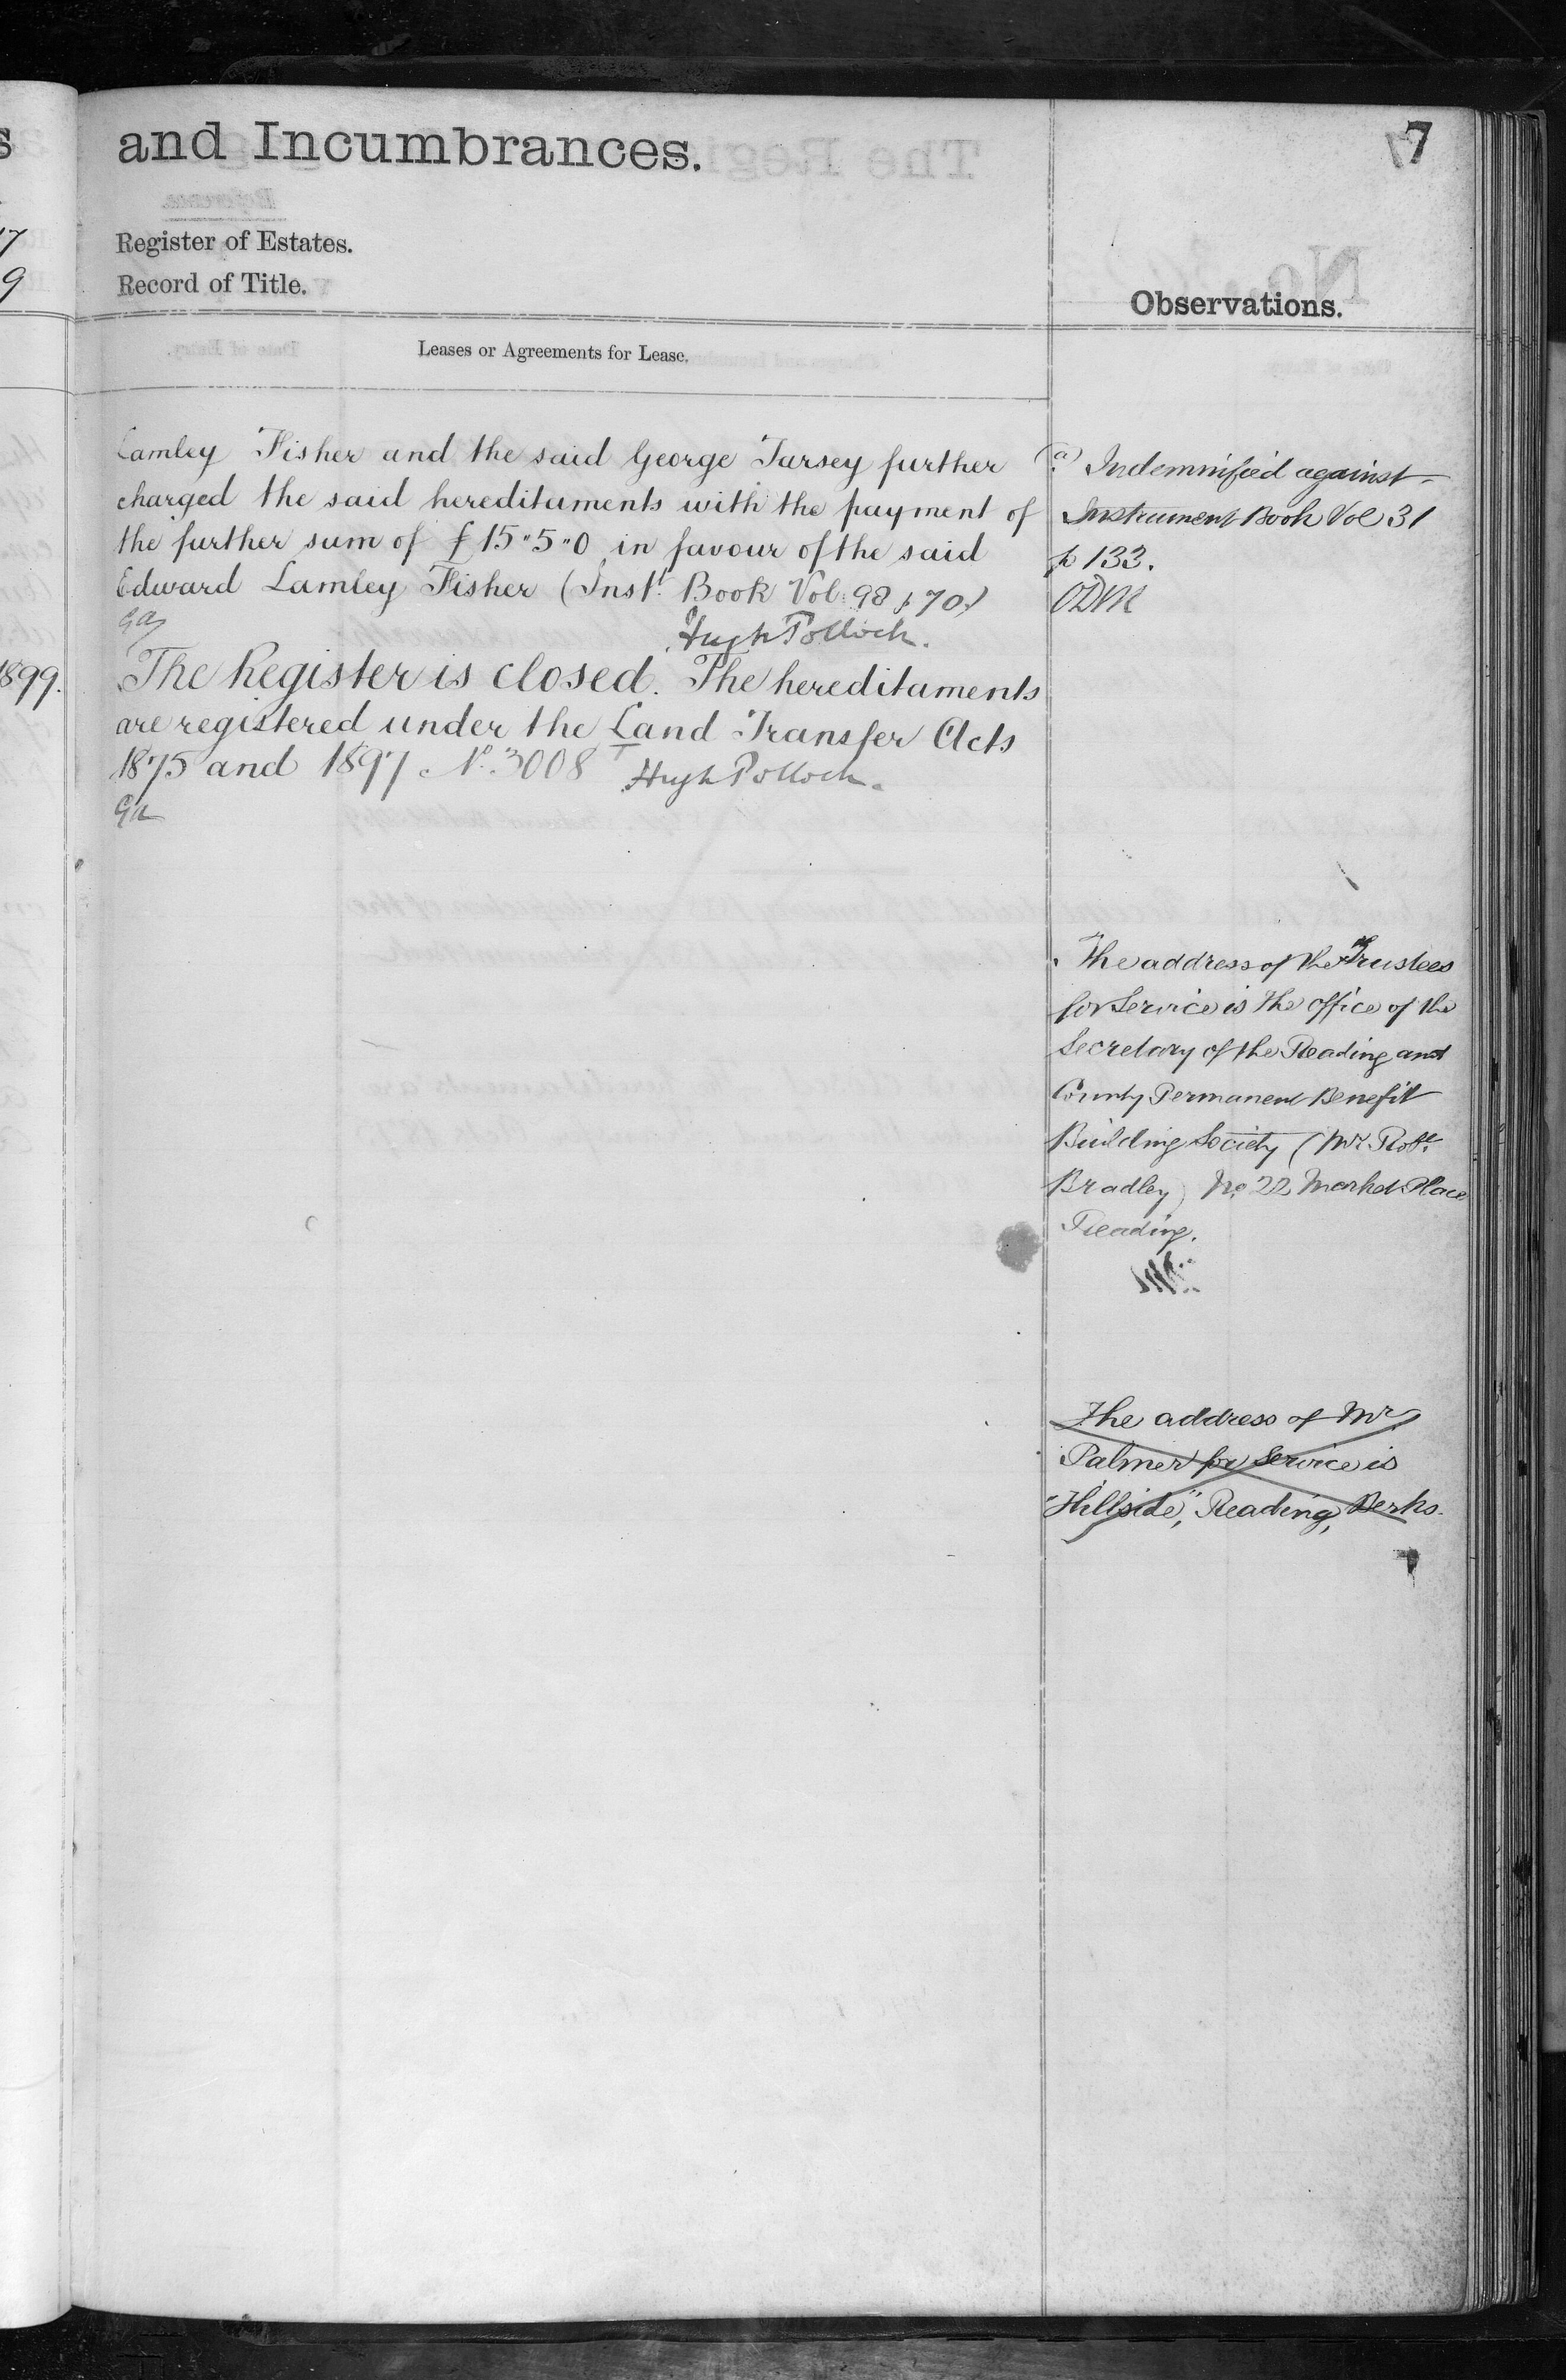 and Incumbrances.
7
Register of Estates.
Record of Title.
Observations.
Leases or Agreements for Lease.
Lamley Fisher and the said George Tarsey further
charged the said hereditaments with the payment of
the further sum of £15"5"0 in favour of the said
Edward Lamley Fisher (Inst. Book Vol. 98 p 70)
Hugh Pollock.
1899.
The Register is closed. The hereditaments
are registered under the Land Transfer Acts
1875 and 1897 No. 3008 Hugh Pollock.
(a) Indemnified against
Instrument Book Vol 31
p 133.
The address of the Trustees
for Service is the office of the
Secretary of the Reading and
County Permanent Benefit
Building Society (Mr. Robt.
Bradley) No 22 Market Place
Reading.
The address of Mr.
Palmer for Service is
"Hillside," Reading, Berks.